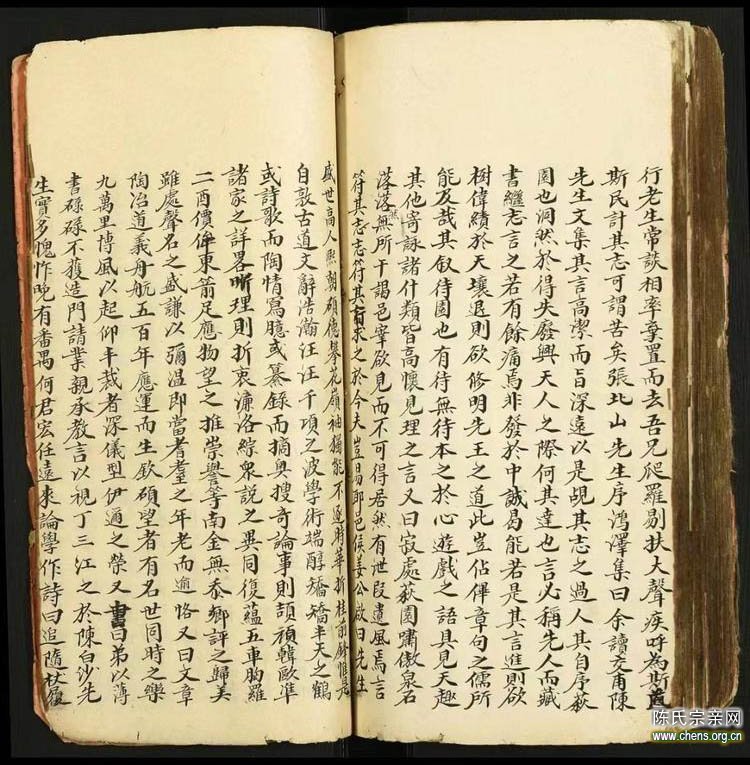 行老生常談相率棄置而去吾兄爬羅剔抉大聲疾呼為斯道
斯民計其志可謂苦矣張北山先生序鴻澤集曰余讀交甫陳
先生文集其言高潔而旨深遠以是覘其志之過人其自序荻
園也洞然於得失廢興天人之際何其達也言必稱先人而藏
書繼志言之若有餘痛焉非發於中誠曷能若是其言進則欲
樹偉績於天壤退則欲修明先王之道此豈佔俾章句之儒所
能及哉其叙待園也有待無待本之於心遊戲之語具見天趣
其他寄詠諸什類皆高懷見理之言又曰寂處荻園嘯傲泉石
落落無所干謁邑宰欲見而不可得居然有世段遺風焉言
符其志志符其求之於今夫豈易郎邑侯姜公啟曰先生
盛世高人熙朝碩德舉花嶺袖獨能不逐時華折桂前鈴惟是
自敦古道文辭浩瀚汪汪千頃之波學術端醇矯矯半天之鶴
或詩歌而陶情寫臆或纂錄而摘奧搜奇論事則頡頏韓歐準
諸家之詳畧晰理則折衷濂洛綜衆說之異同復蘊五車胸羅
二酉價侔東箭足應物望之推崇譽等南金無忝鄉評之歸美
雖處聲名之盛謙以彌温即當耆耋之年老而逾恪又曰文章
陶冶道義舟航五百年應運而生欽碩望者有名世同時之樂
九萬里博風以起仰丰裁者深儀型伊邇之榮又曰弟以薄
書碌碌不獲造門請業親承教言以視丁三江之於陳白沙先
生實多愧怍晚有番禺何君宏任遠來論學作詩曰追隨杖履
陈氏宗亲网
www.chens.org.cn